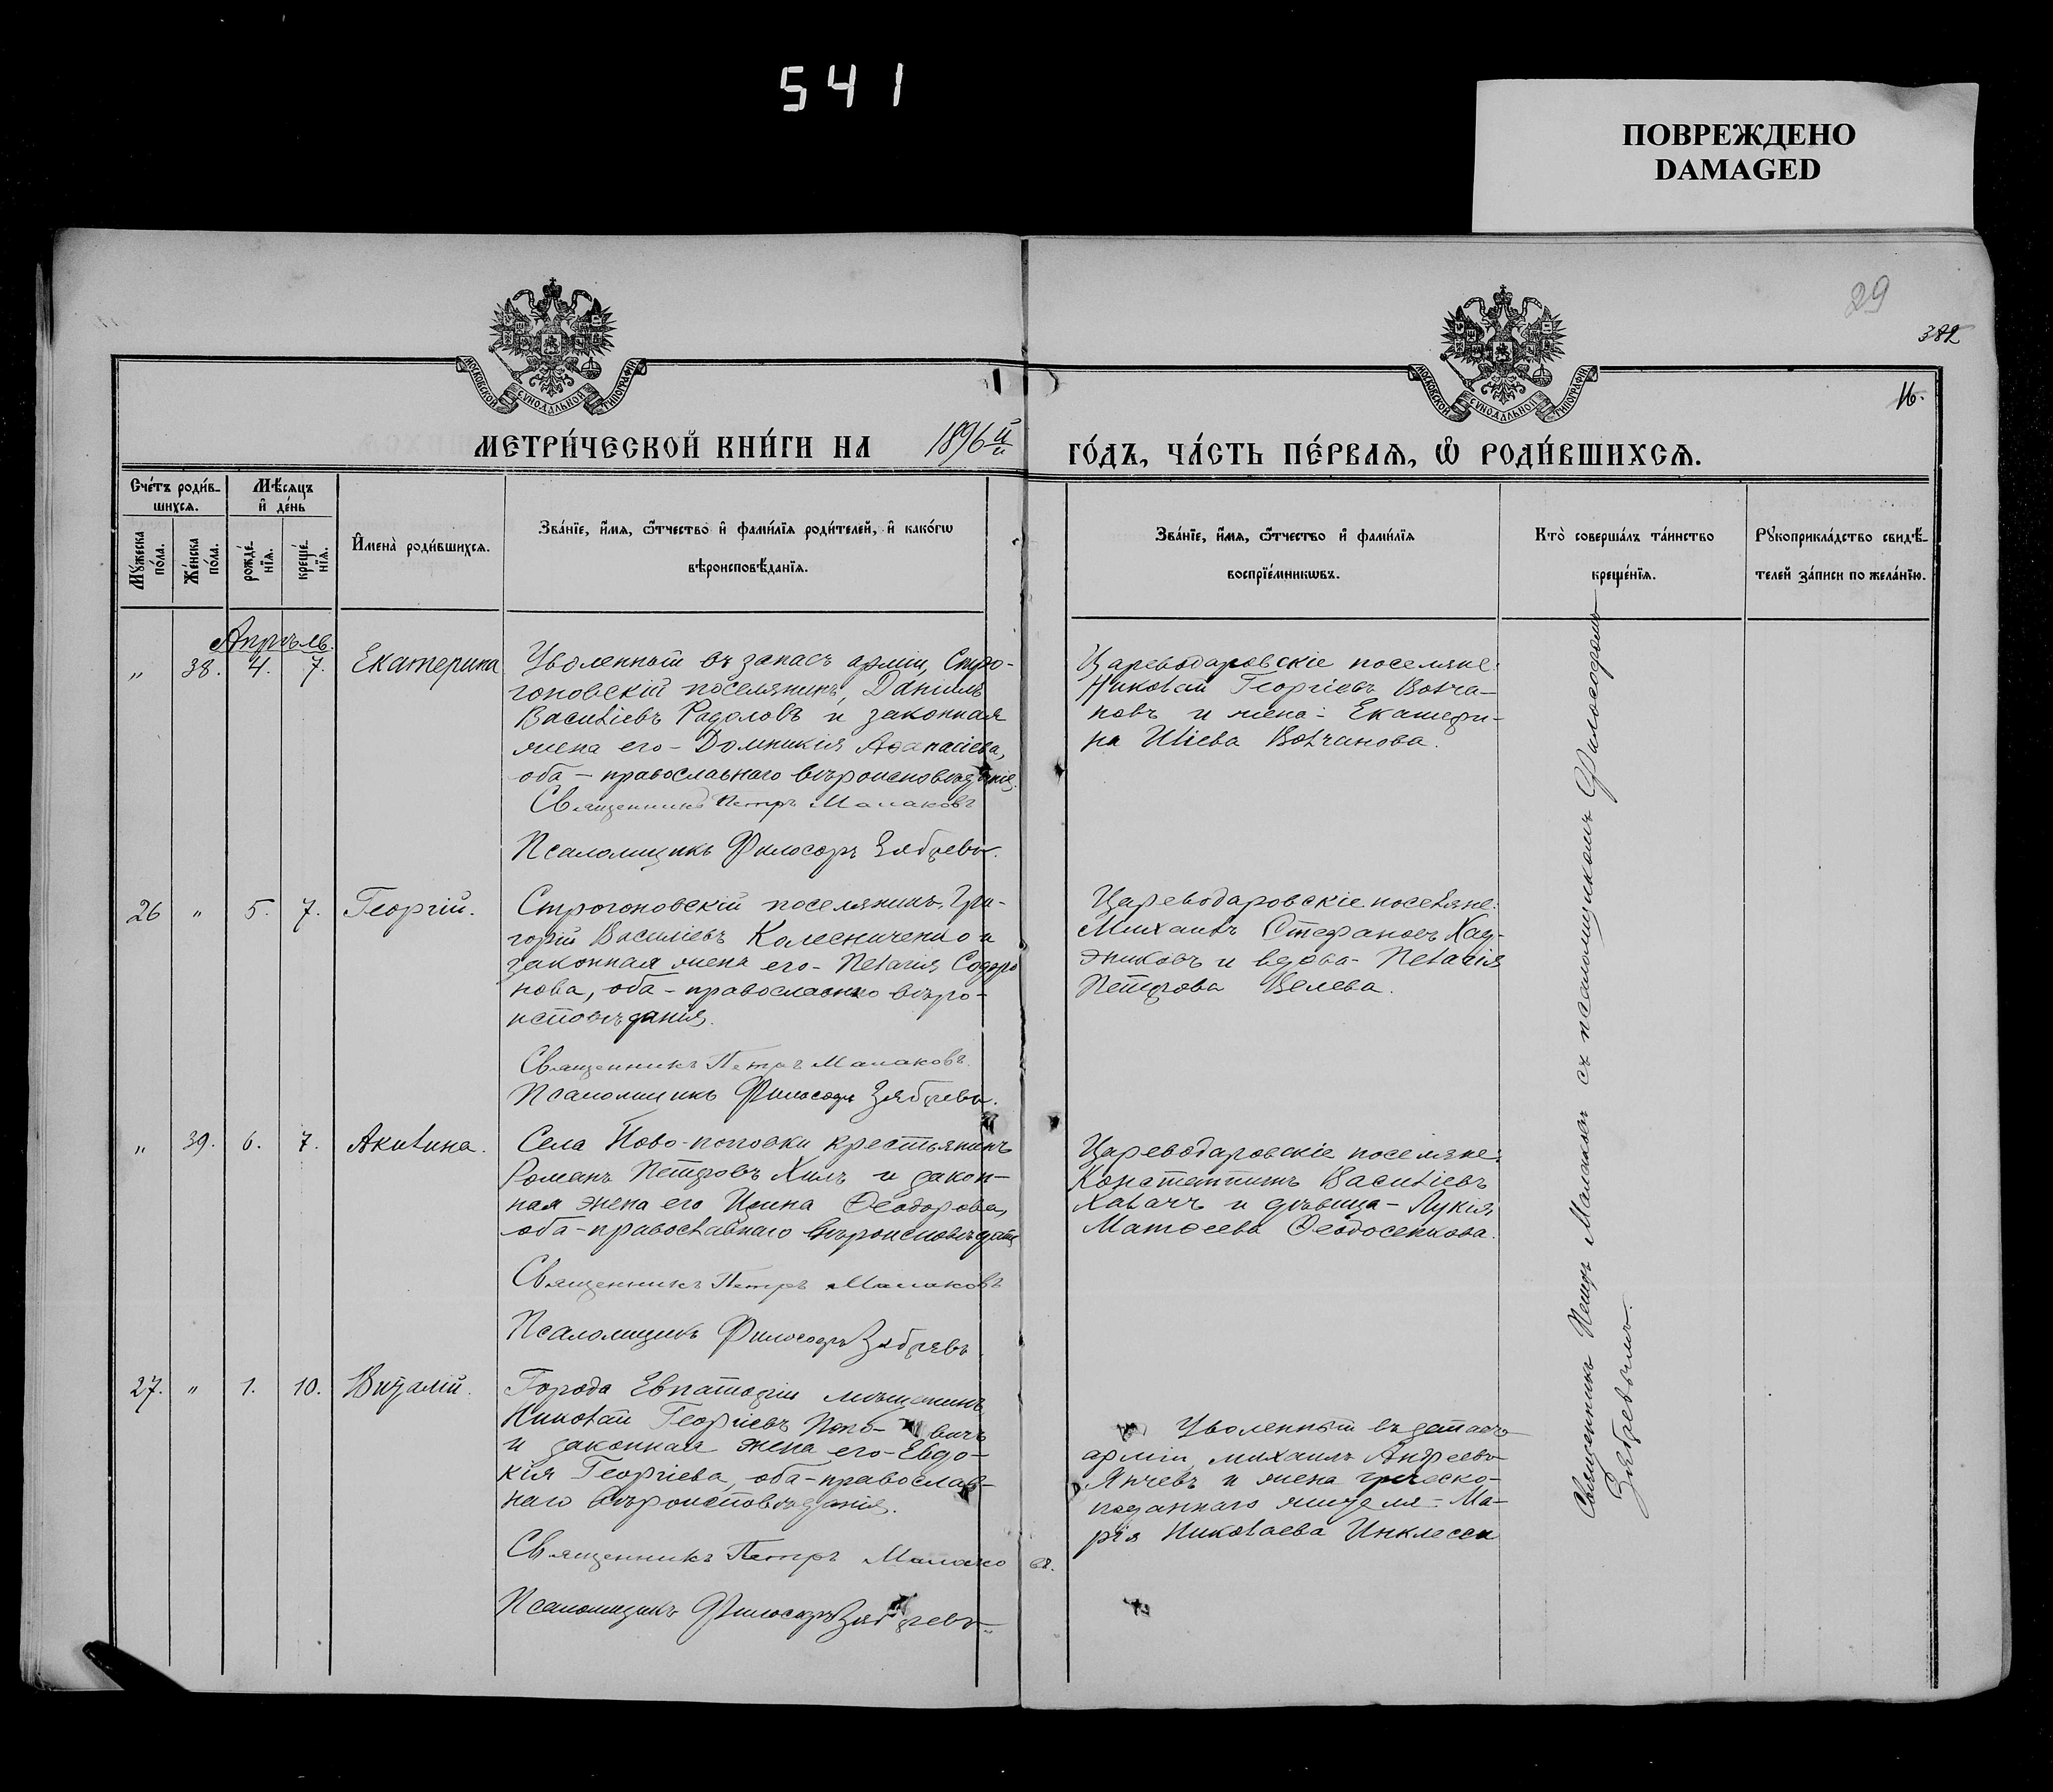 541
ПОВРЕЖДЕНО
DAMAGED
29
382
16.
МОСКОВСКОЙ СѴНОДАЛЬНОЙ ТИПОГРАФІИ
МОСКОВСКОЙ СѴНОДАЛЬНОЙ ТИПОГРАФІИ
МЕТРИ́ЧЕСКОЙ КНИ́ГИ НА 1896й ГО́ДЪ, ЧА́СТЬ ПЕ́РВАѦ, Ѡ РОДИ́ВШИХСѦ.
Сче́тъ роди́в-
шихсѧ.
Мѣ́сяцъ
и҆ де́нь
Мꙋ́жеска
по́ла.
Же́нска
по́ла.
рожде́-
нїѧ.
креще́-
нїѧ.
И҆мена̀ роди́вшихсѧ.
Зва́нїе, и҆́мѧ, ѻ҆́тчество и҆ фами́лїѧ роди́телей, и҆ како́гѡ
вѣроисповѣ́данїѧ.
Зва́нїе, и҆́мѧ, ѻ҆́тчество и҆ фами́лїѧ
воспрїе́мникѡвъ.
Кто̀ соверша́лъ та́инство
креще́нїѧ.
Рꙋкоприкла́дство свидѣ́-
телей за́писи по жела́нїю.
Апрѣль.
„ 38. 4. 7. Екатерина
Уволенный въ запасъ арміи, Стро-
гоновскій поселянинъ, Даніилъ
Василіевъ Радоловъ и законная
жена его - Домникія Аѳанасіева,
оба - православнаго вѣроисповѣданія.
Священникъ Петръ Малаковъ
Псаломщикъ Философъ Зябревъ.
Цареводаровскіе поселяне:
Николай Георгіевъ Волча-
новъ и жена - Екатери-
на Иліева Волчанова.
26 „ 5. 7. Георгій.
Строгоновскій поселянинъ Гри-
горій Василіевъ Колесниченко и
законная жена его - Пелагія Софро
нова, оба - православнаго вѣро-
исповѣданія.
Священникъ Петръ Малаковъ.
Псаломщикъ Философъ Зябревъ.
Цареводаровскіе поселяне:
Михаилъ Стефановъ Хад-
жиковъ и вдова - Пелагія
Петрова Велева.
„ 39. 6. 7. Акилина.
Села Ново-поповки крестьянинъ
Романъ Петровъ Хиль и закон-
ная жена его Ирина Ѳеодорова,
оба - православнаго вѣроисповѣдані
Священникъ Петръ Малаковъ
Псаломщикъ Философъ Зябревъ
Цареводаровскіе поселяне:
Константинъ Василіевъ
Халачъ и дѣвица - Лукія
Матѳеева Ѳеодосенкова.
27. „ 1. 10. Виталій.
Города Евпаторіи мѣщанинъ
Николай Георгіевъ вичъ
и законная жена его - Евдо-
кія Георгіева, оба - православ-
наго вѣроисповѣданія.
Священникъ Петръ Малаковъ.
Псаломщикъ Философъ Зябревъ.
Уволенный въ запасъ
арміи Михаилъ Андреевъ
Янчевъ и жена греческо-
подданнаго жителя - Ма-
рія Николаева
Священникъ Петръ Малаковъ съ псаломщикомъ Философомъ
Зябревымъ.